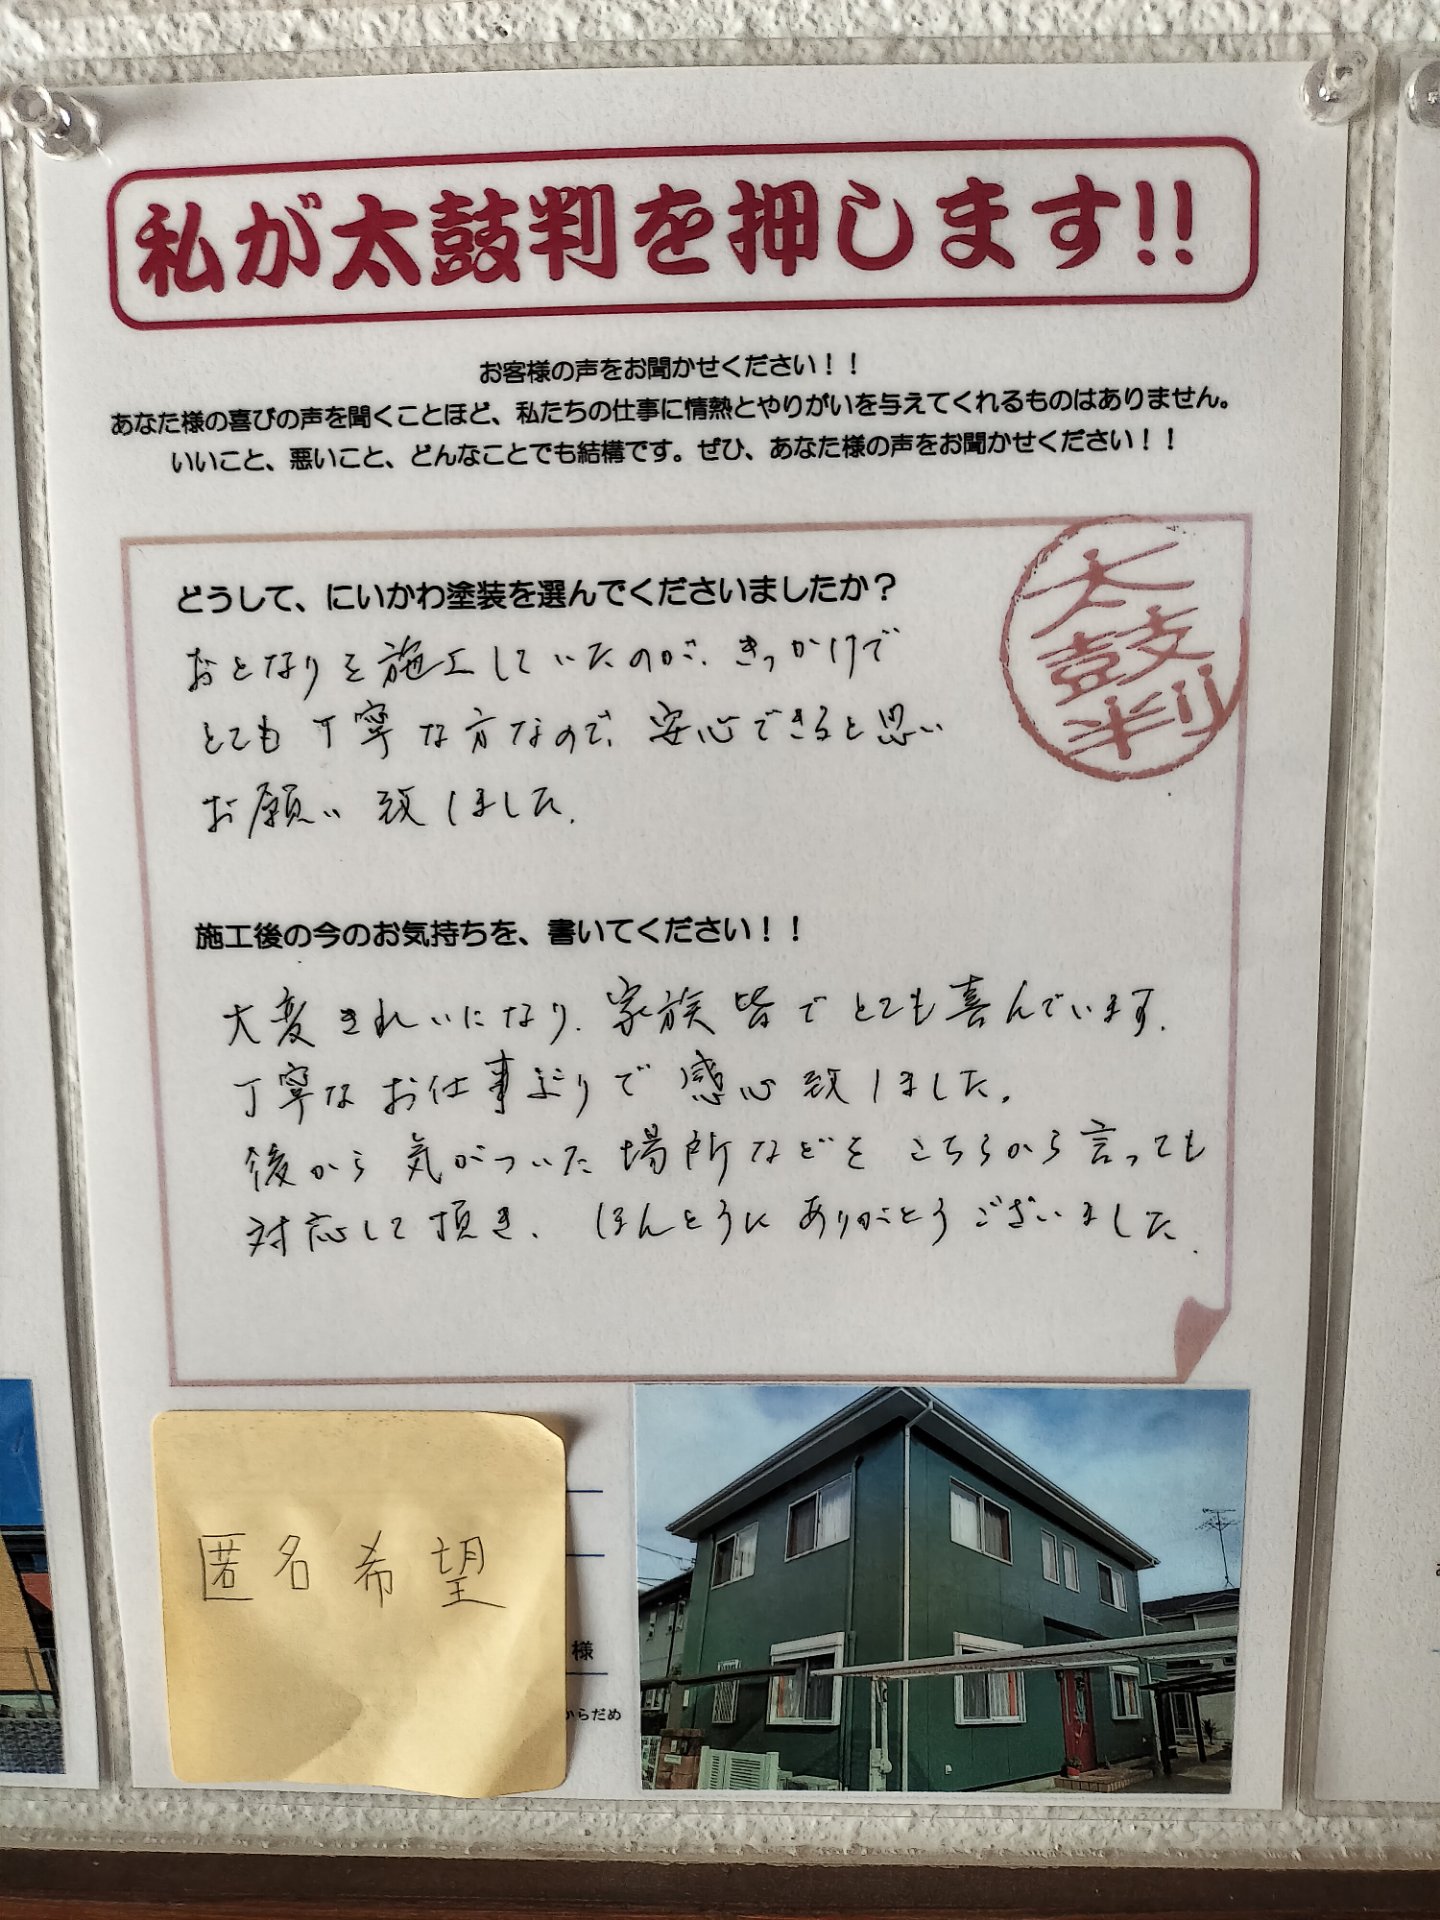 私が太鼓判を押します!!
お客様の声をお聞かせください！！
あなた様の喜びの声を聞くことほど、私たちの仕事に情熱とやりがいを与えてくれるものはありません。
いいこと、悪いこと、どんなことでも結構です。ぜひ、あなた様の声をお聞かせください！！
太鼓判
どうして、にいかわ塗装を選んでくださいましたか？
おとなりを施工していたのが、きっかけで
とても丁寧な方なので、安心できると思い
お願い致しました.
施工後の今のお気持ちを、書いてください！！
大変きれいになり、家族皆でとても喜んでいます.
丁寧なお仕事ぶりで感心致しました.
後から気がついた場所などをこちらから言っても
対応して頂き、ほんとうにありがとうございました.
匿名希望
様
からだめ